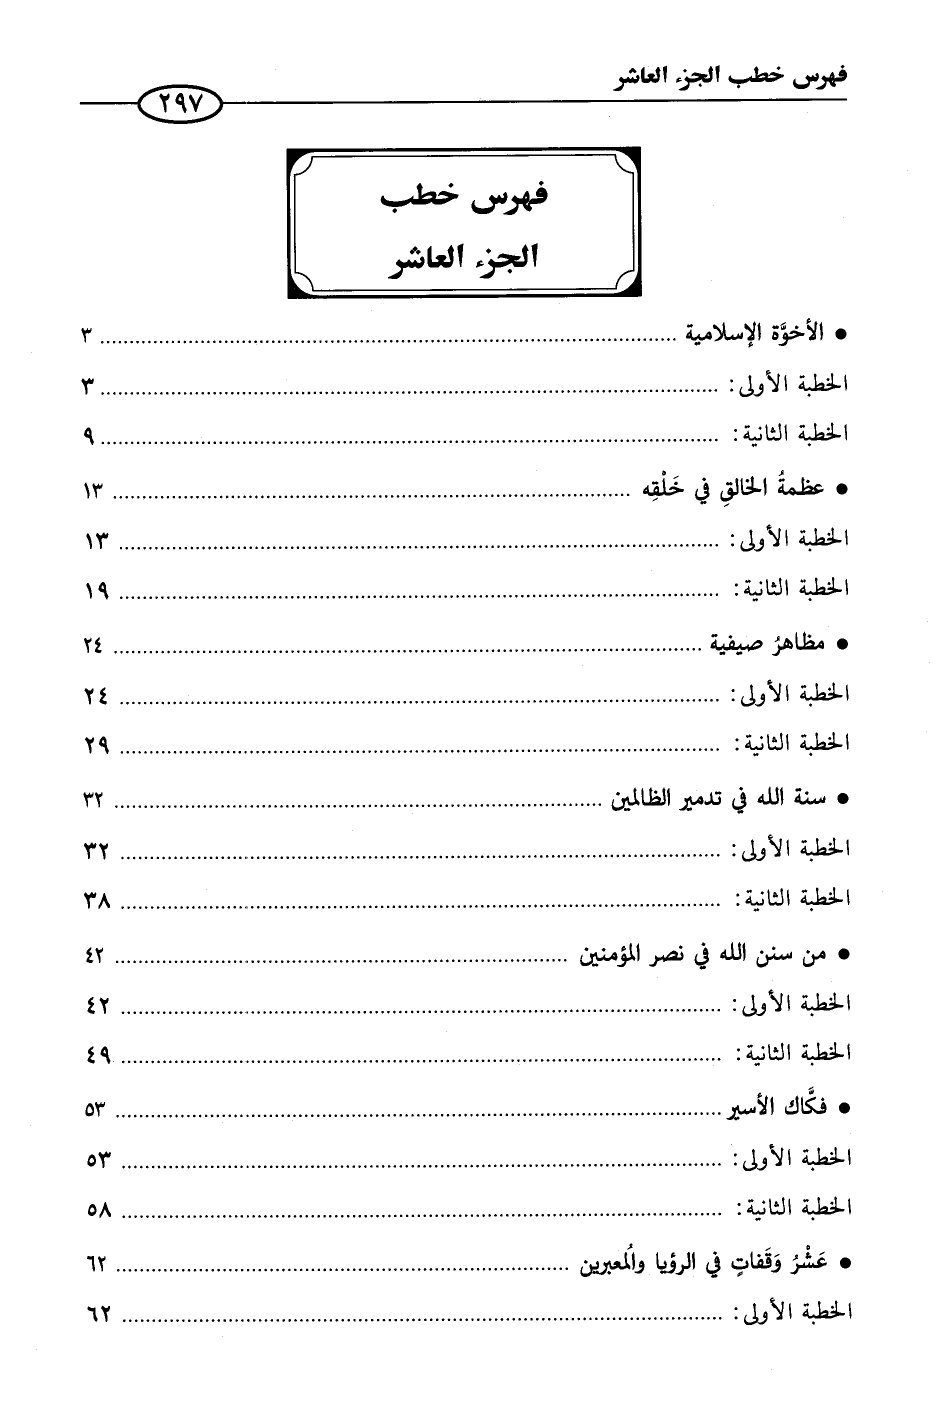 فهرس خطب الجزء العاشر
٢٩٧
فهرس خطب
الجزء العاشر
● الأخوَّة الإسلامية ................ ٣
الخطبة الأولى: ................ ٣
الخطبة الثانية: ................ ٩
● عظمةُ الخالقِ في خَلْقِه ................ ١٣
الخطبة الأولى: ................ ١٣
الخطبة الثانية: ................ ١٩
● مظاهرُ صيفية ................ ٢٤
الخطبة الأولى: ................ ٢٤
الخطبة الثانية: ................ ٢٩
● سنة الله في تدمير الظالمين ................ ٣٢
الخطبة الأولى: ................ ٣٢
الخطبة الثانية: ................ ٣٨
● من سنن الله في نصر المؤمنين ................ ٤٢
الخطبة الأولى: ................ ٤٢
الخطبة الثانية: ................ ٤٩
● فكَّاك الأسير ................ ٥٣
الخطبة الأولى: ................ ٥٣
الخطبة الثانية: ................ ٥٨
● عَشْرُ وَقَفاتٍ في الرؤيا والمُعبرين ................ ٦٢
الخطبة الأولى: ................ ٦٢